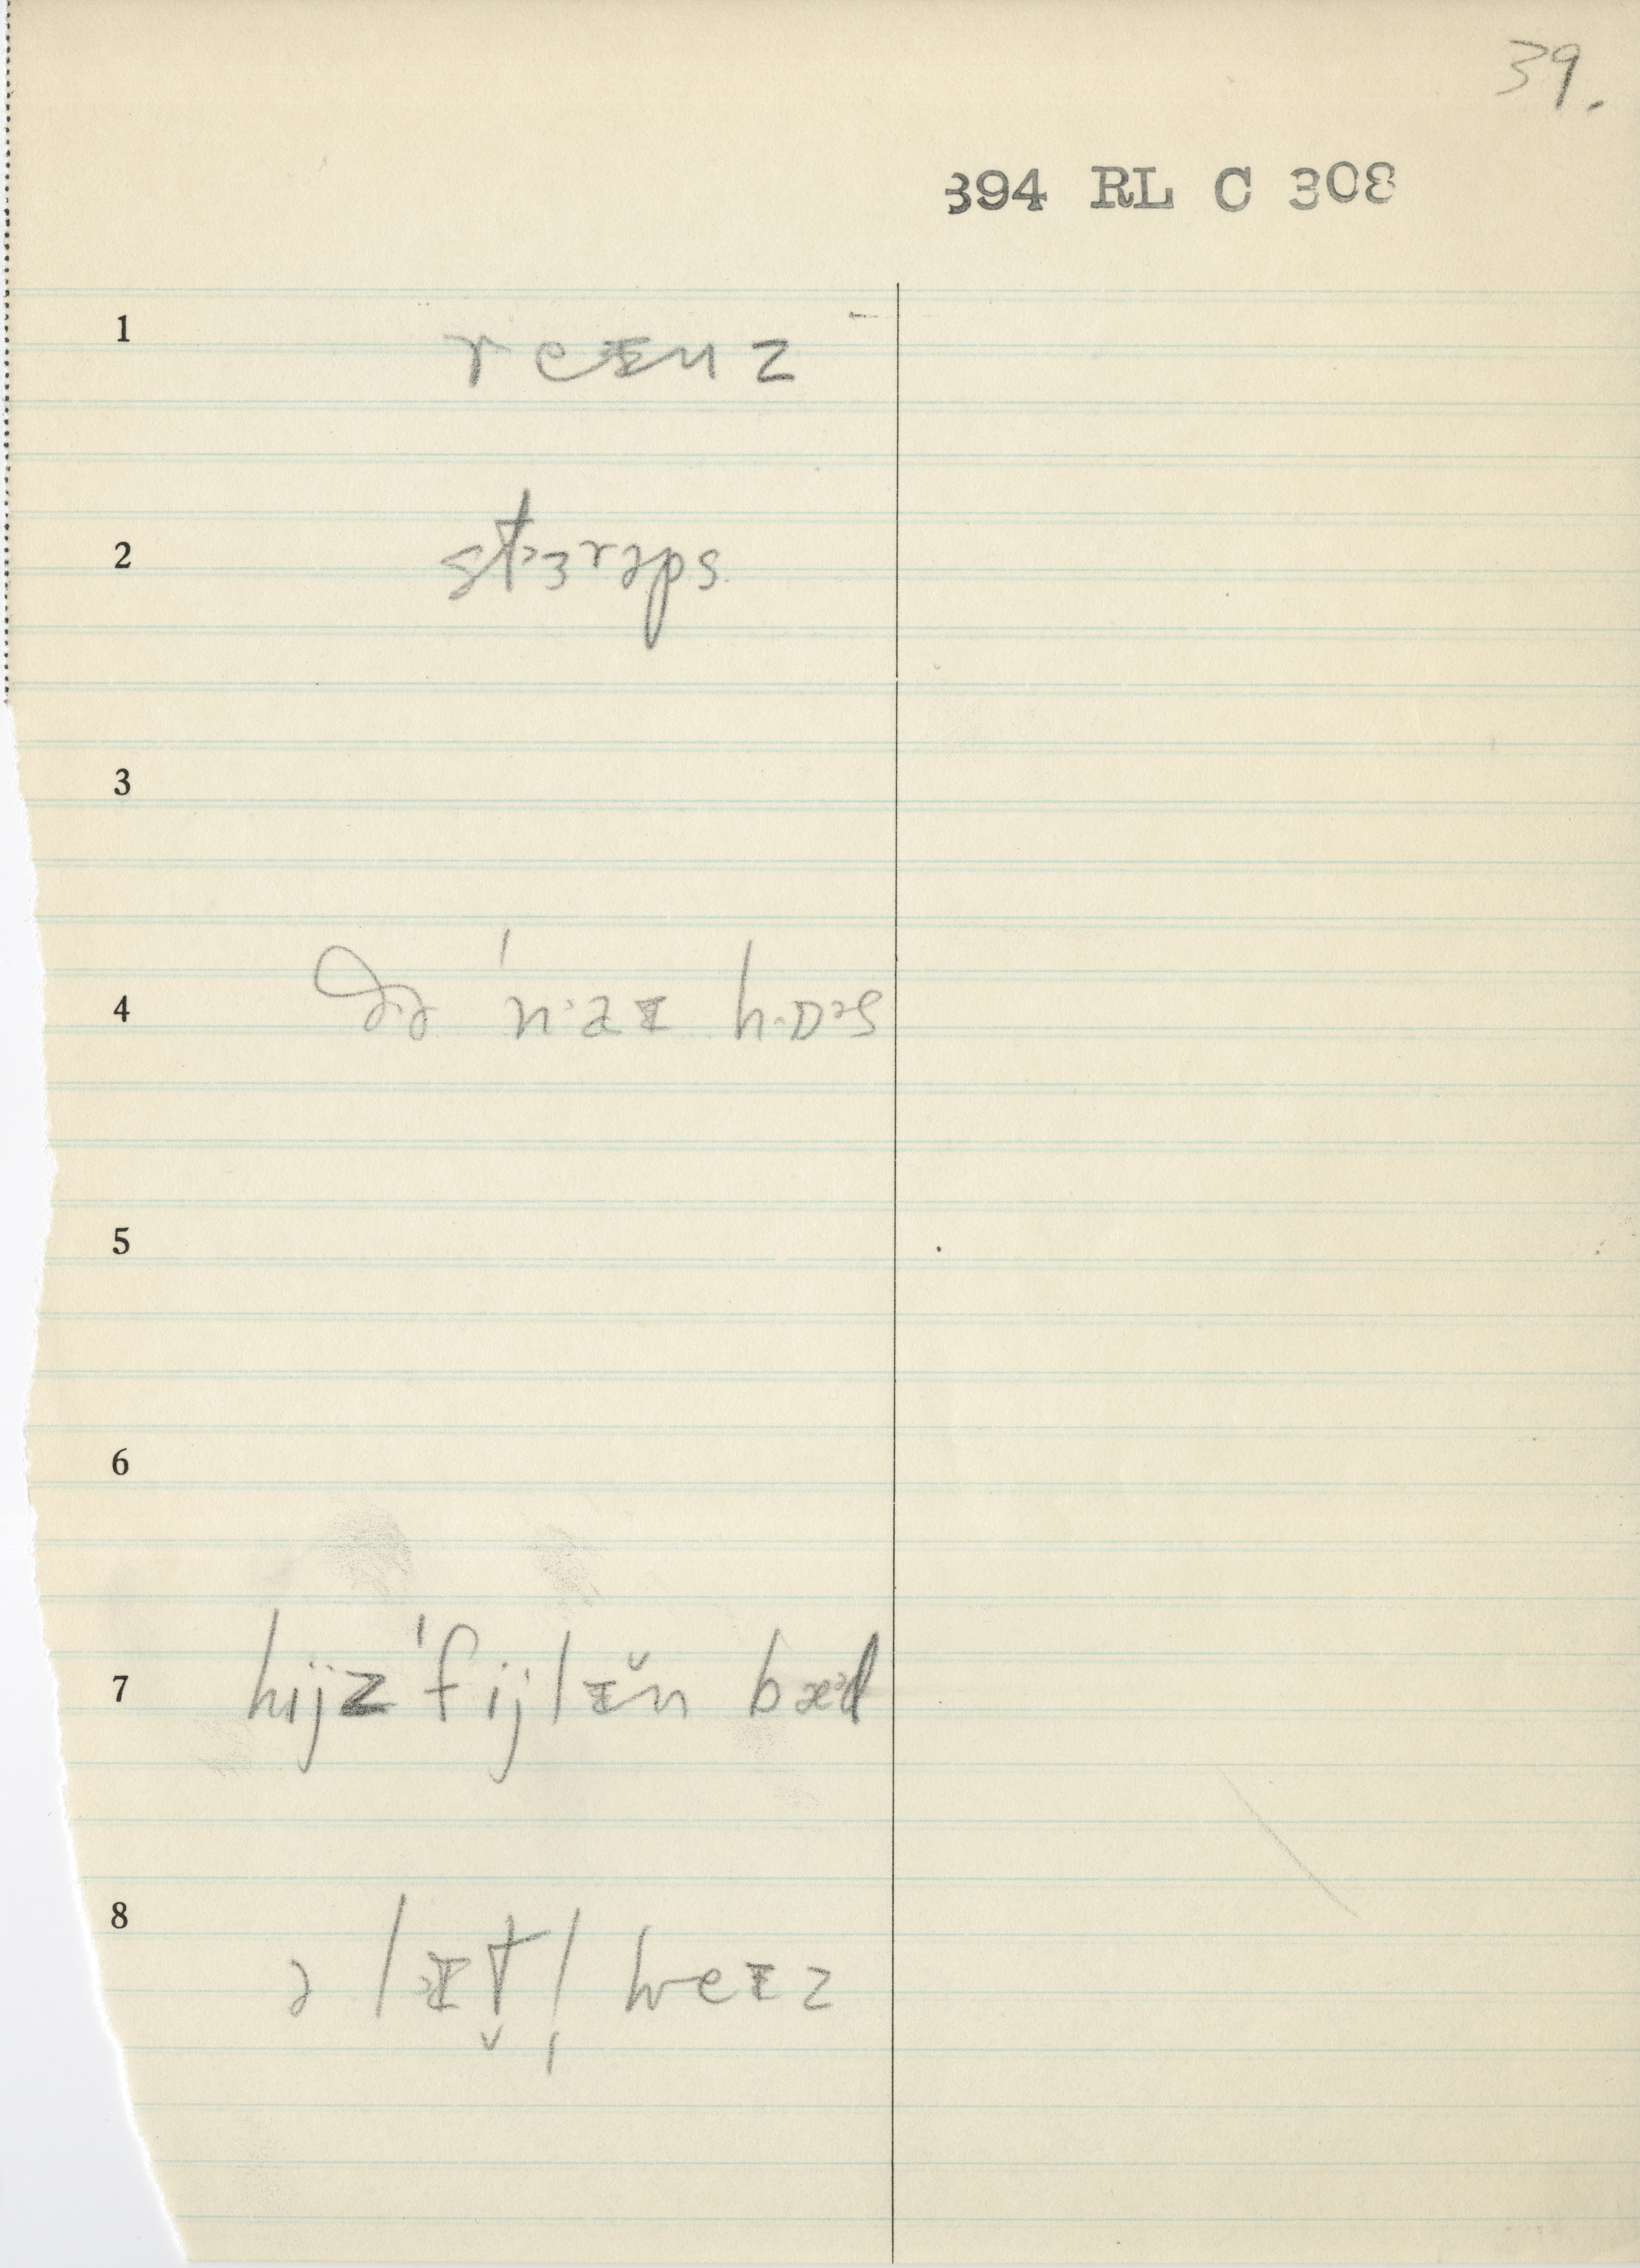 39.
394 RL C 308
1 reɪnz
2 stɜrəps
3
4 ðə ˈn·aɪ hɒəs
5
6
7 hijz ˈfijlɪ̆n bæ·d
8 ə lɪt̬l̩ weɪz